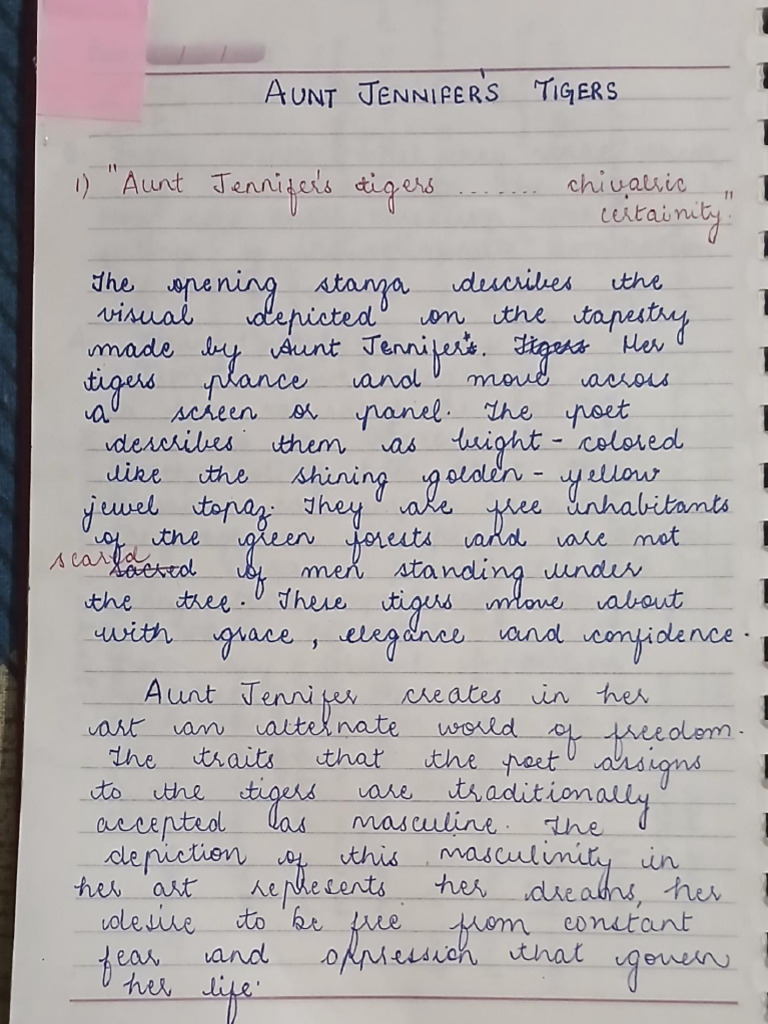 AUNT JENNIFER'S TIGERS
1) "Aunt Jennifer's tigers ........ chivalric
certainity."
The opening stanza describes the
visual depicted on the tapestry
made by Aunt Jennifer's. Tigers Her
tigers prance and move across
a screen or panel. The poet
describes them as bright-colored
like the shining golden-yellow
jewel topaz. They are free inhabitants
of the green forests and are not
scared sacred of men standing under
the tree. These tigers move about
with grace, elegance and confidence.
Aunt Jennifer creates in her
art an alternate world of freedom.
The traits that the poet assigns
to the tigers are traditionally
accepted as masculine. The
depiction of this masculinity in
her art represents her dreams, her
desire to be free from constant
fear and oppression that govern
her life.